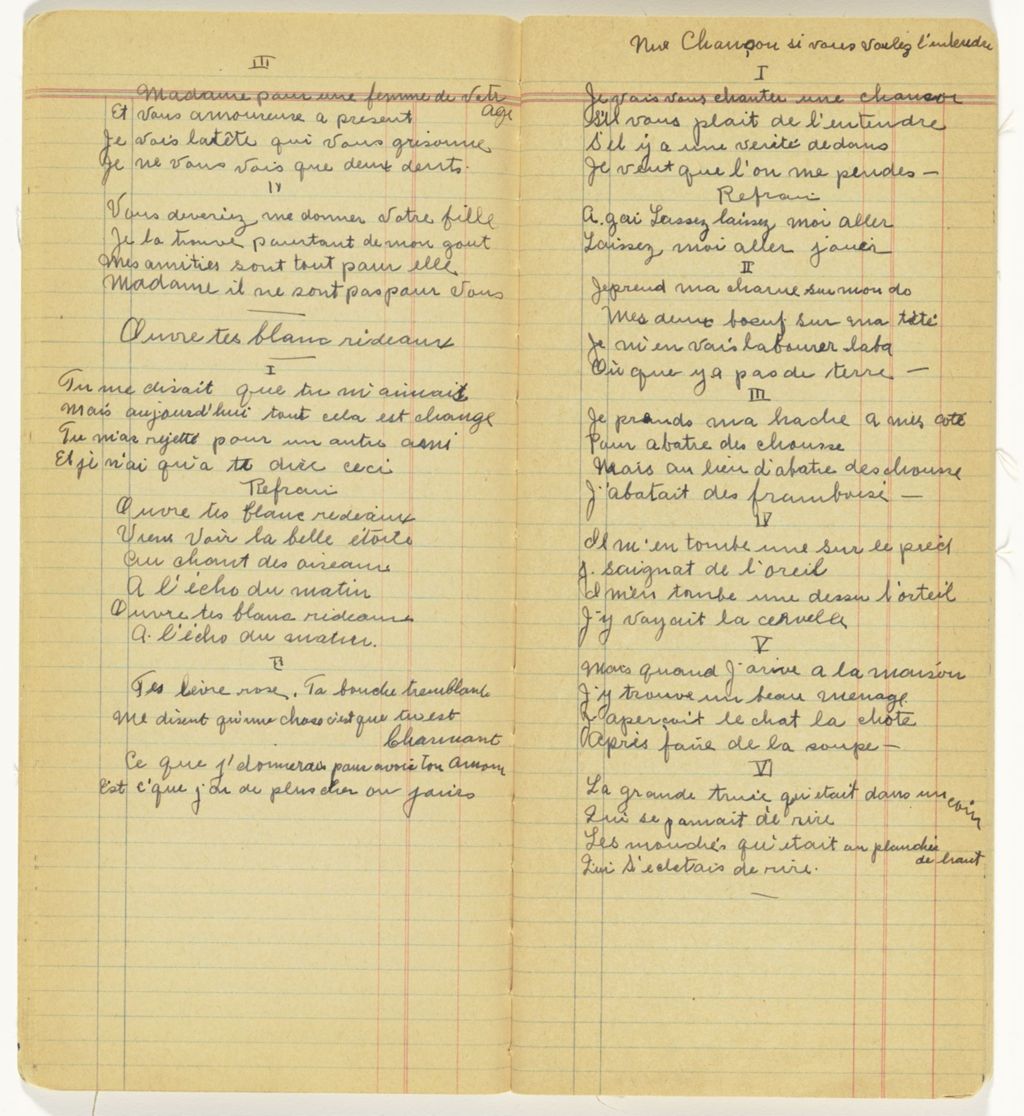 III
Madame pour une femme de votr
age
Et vous amoureuse a present
Je vois latête qui vous grisonne
Je ne vous vois que deux dents.
IV
Vous deveriez me donner votre fille
Je la trouve pourtant de mon gout
Mes amities sont tout pour elle
Madame il ne sont pas pour vous
Ouvre tes blanc rideaux
I
Tu me disait que tu m'aimait
Mais aujourd'hui tout cela est change
Tu m'as rejetté pour un autre ami
Et je n'ai qu'a te dire ceci
Refrai
Ouvre tes blanc rideaux
Viens voir la belle étoile
Au chant des oiseaux
A l'écho du matin
Ouvre tes blanc rideaux
A l'écho du matin.
II
Tes levre rose, Ta bouche tremblante
Me disent qu'une chose c'est que tu est
Charmant
Ce que j'donnerais pour avoir ton Amour
Est c'que j'ai de plus cher ou jours
Une Chançon si vous voulez l'entendre
I
Je vais vous chanter une chanson
S'il vous plait de l'entendre
S'il y a une verité dedans
Je veut que l'on me pendes —
Refrai
A gai Laissez laissez moi aller
Laissez moi aller jouer
II
Je prend ma charue sur mon do
Mes deux boeuf sur ma tété
Je m'en vais labourer laba
Où que y a pas de terre —
III
Je prends ma hache a mes coté
Pour abatre des chousse
Mais au lieu d'abatre des chousse
J'abatait des framboise —
IV
Il m'en tombe une sur le pied
J. saignat de l'oreil
Il m'en tombe une dessu l'orteil
J'y voyait la cervelle
V
Mais quand J'arive a la maison
J'y trouve un beau menage
L'aperçoit le chat la chôte
Après faire de la soupe —
VI
La grande truie qu'etait dans un coin
Qui se pamait de rire
Les mouches qu'etait au planchée
de haut
Qui s'ecletais de rire.